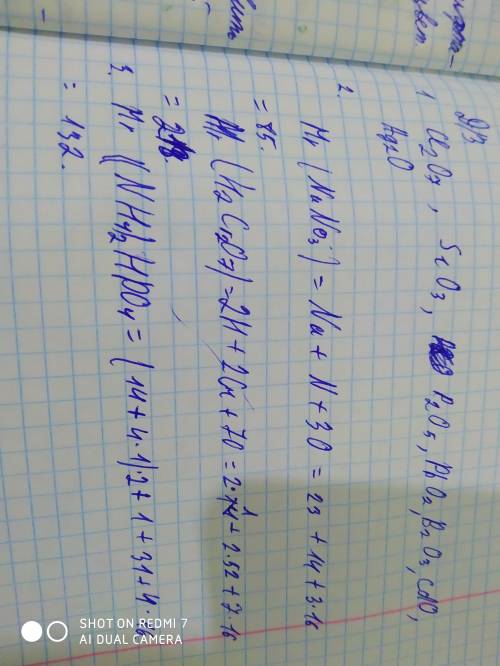 Д/з
1 Cl₂O₇, SeO₃, P₂O₅, PbO₂, B₂O₃, CdO,
Ag₂O
2.
Mr (NaNO₃) = Na + N + 3O = 23 + 14 + 3·16
= 85.
Mr (H₂Cr₂O₇) = 2H + 2Cr + 7O = 2·1 + 2·52 + 7·16
= 218.
3. Mr ((NH₄)₂HPO₄ = (14 + 4·1)·2 + 1 + 31 + 4·16
= 132.
SHOT ON REDMI 7
AI DUAL CAMERA